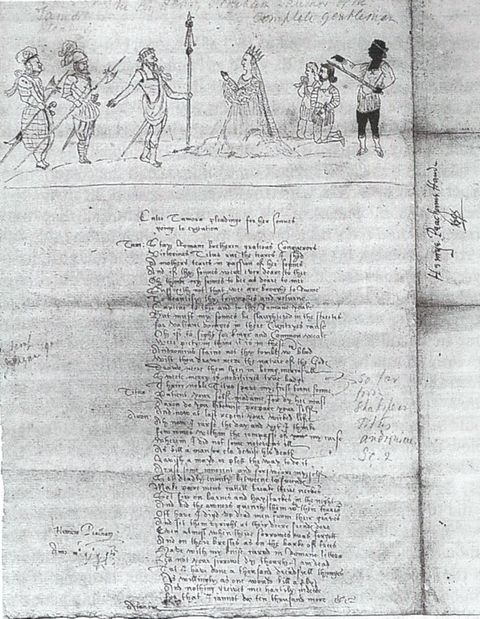 Henry Peacham author of the
Complete Gentleman
Henrye Peachams Hande
1595
Enter Tamora pleadinge for her sonnes
going to execution
Tam: Stay Romane bretheren gratious Conquerors
Victorious Titus rue the teares I shed
A mothers teares in passion of her sonnes
And if thy sonnes were ever deare to thee
Oh thinke my sonnes to bee as deare to mee
Suffizeth not that wee are brought to Roome
To beautify thy triumphes and returne
Captiue to thee and to thy Romane yoake
But must my sonnes be slaughtered in the streetes
for valiant doinges in there Cuntryes cause
Oh if to fight for kinge and Common weale
Were piety in thine it is in these
Andronicus staine not thy tombe with blood
Wilt thou drawe neere the nature of the Godes
Drawe neere them then in being mercifull
Sweete mercy is nobilityes true badge
Thrice noble Titus spare my first borne sonne
Titus: Patient your self madame for dy hee must
Aaron do you likewise prepare your self
And now at last repent your wicked life
Aron: Ah now I curse the day and yet I thinke
few comes within the compasse of my curse
Wherein I did not some notorious ill
As kill a man or els devise his death
Ravish a mayd or plott the way to do it
Acuse some innocent and forsweare myself
Set deadly enmity betweene too freendes
Make poore mens cattell breake theire neckes
Set fire on barnes and haystackes in the night
And bid the owners quench them with their teares
Oft have I digd vp dead men from their graves
And set them vpright at their deere frendes dore
Even almost when theire sorrowes was forgott
And on their brestes as on the barke of trees
Have with my knife carvd in Romane letters
Lett not your sorrowe dy though I am dead
Tut I have done a thousand dreadfull thinges
As willingly as one would kill a fly
And nothing greives mee hartily indeede
for that I cannot doo ten thousand more &c
So far
from
Shakspear
Titus
Andronicus
Sc. 2
Henricus Peacham